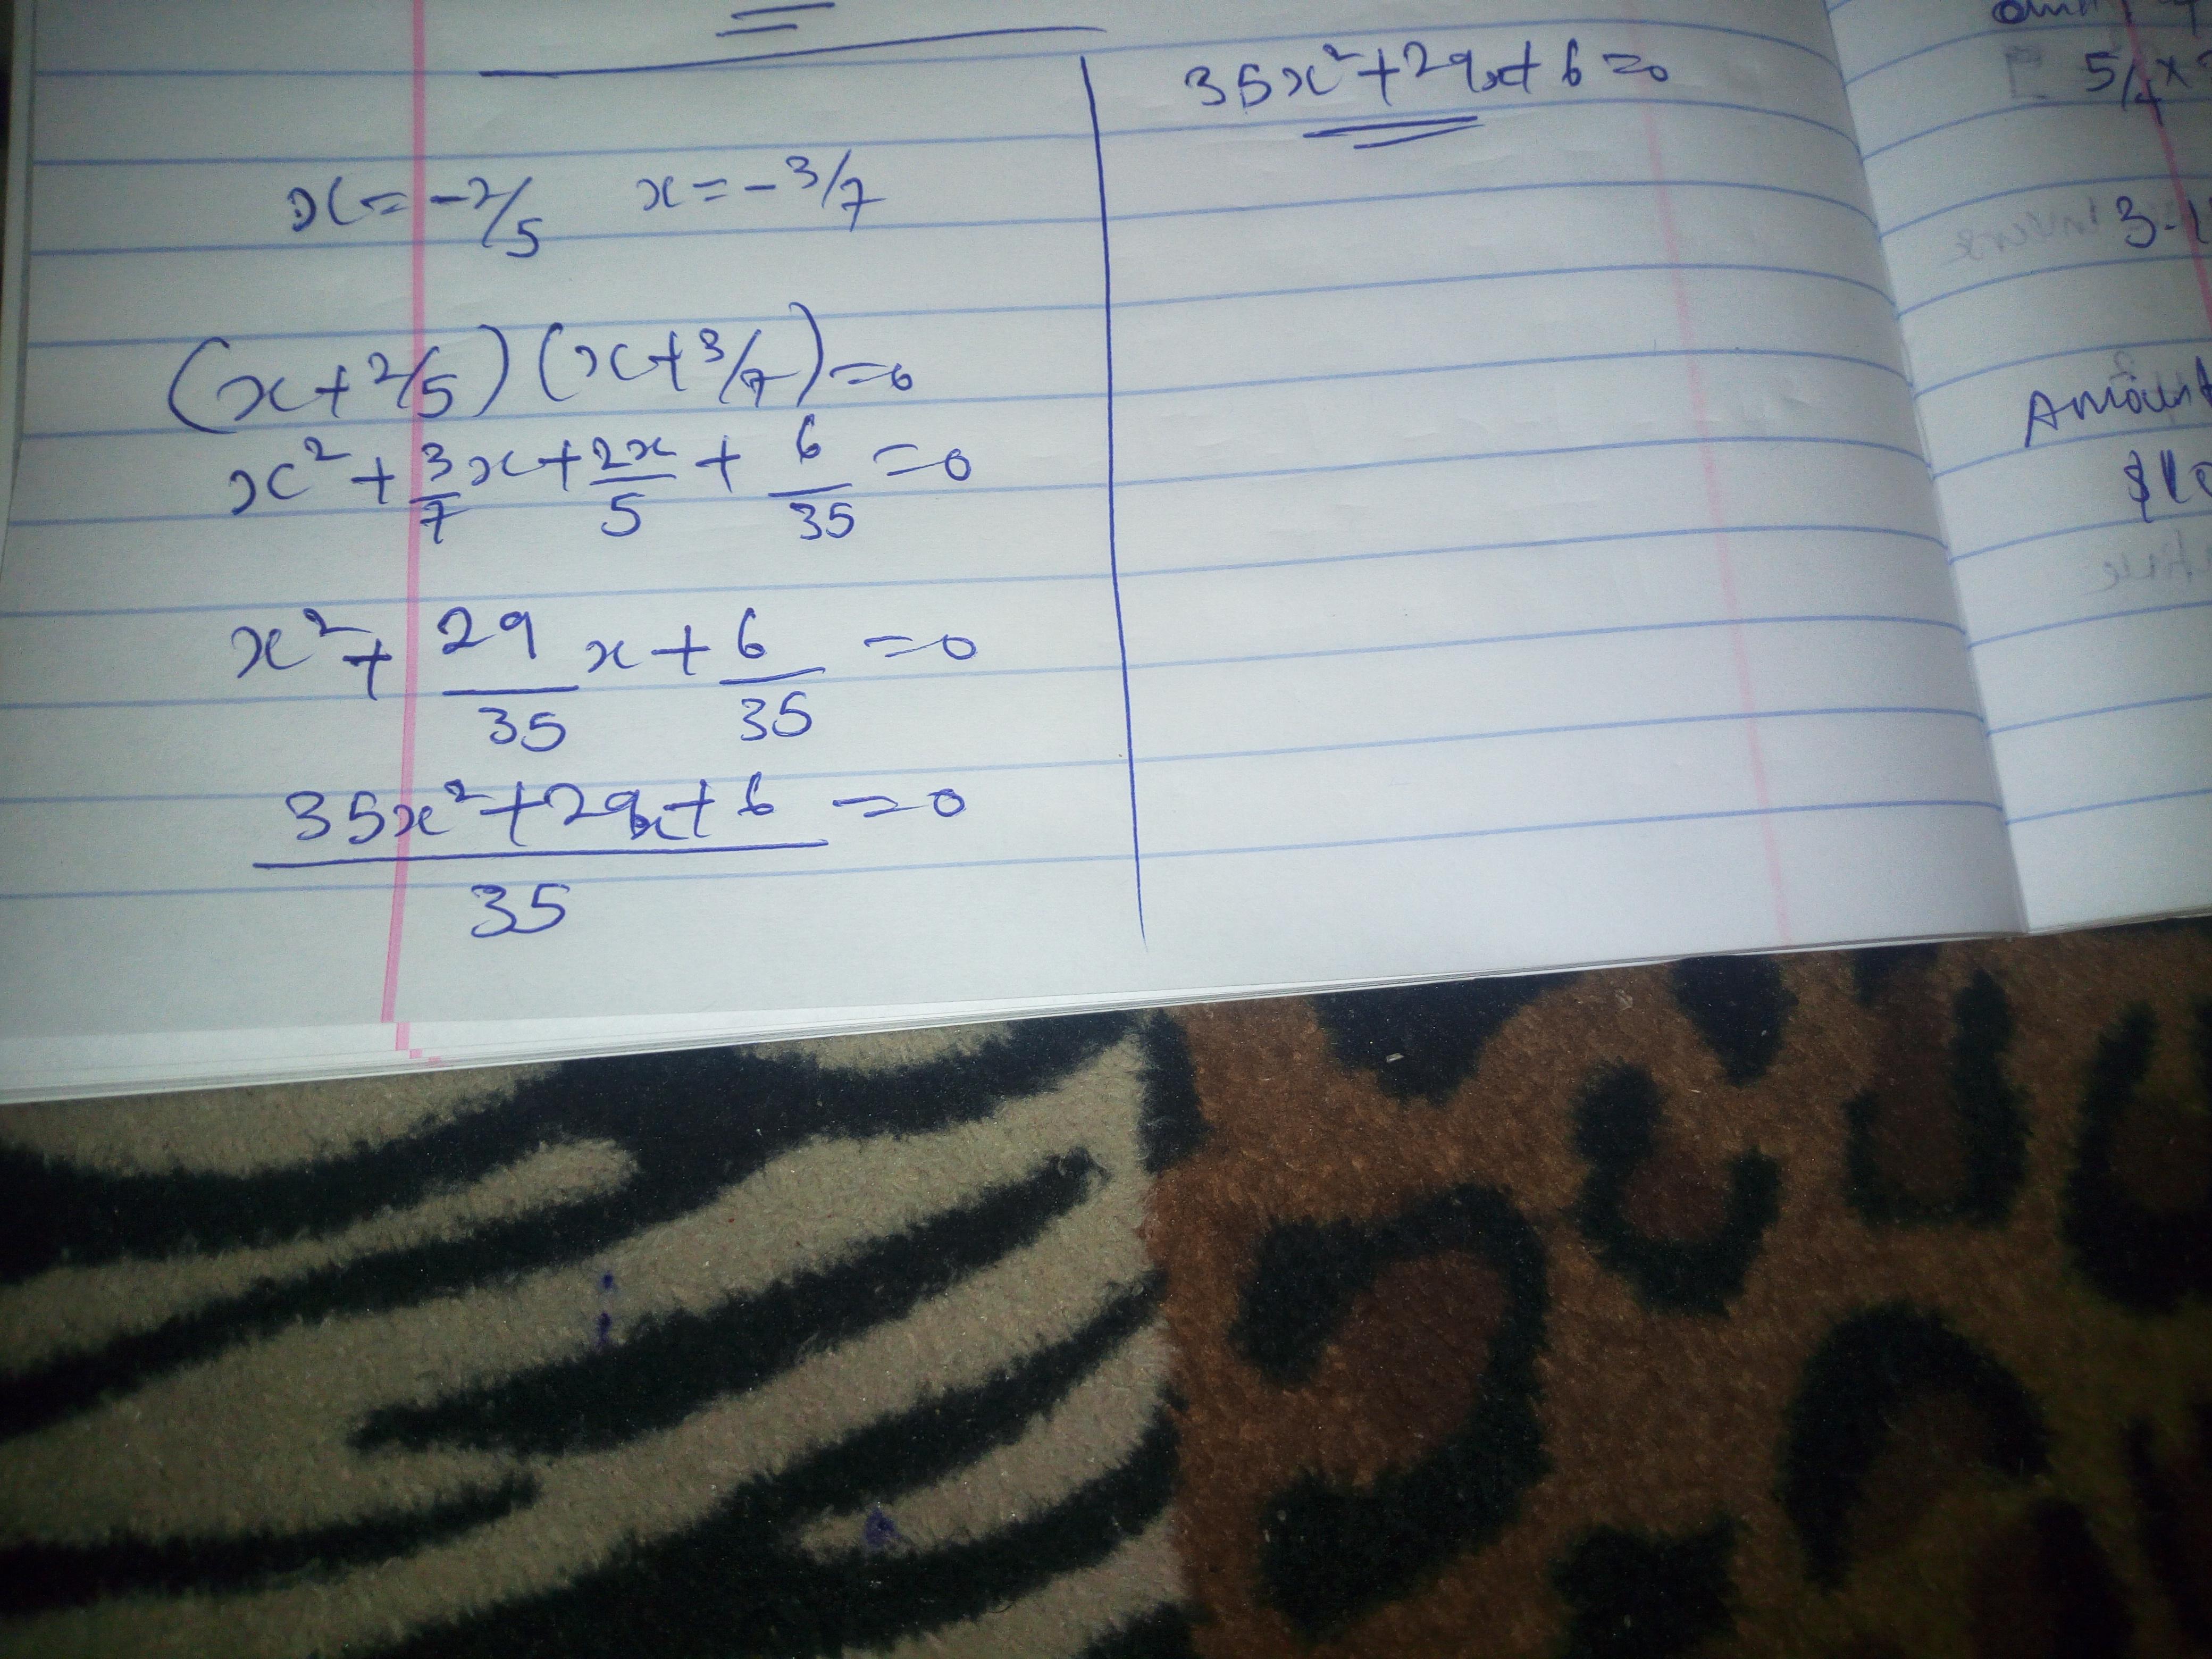 x = -2/5 x = -3/7
(x + 2/5) (x + 3/7) = 0
x² + 3/7 x + 2x/5 + 6/35 = 0
x² + 29/35 x + 6/35 = 0
35x² + 29x + 6 = 0
35
35x² + 29x + 6 = 0
3
Amount